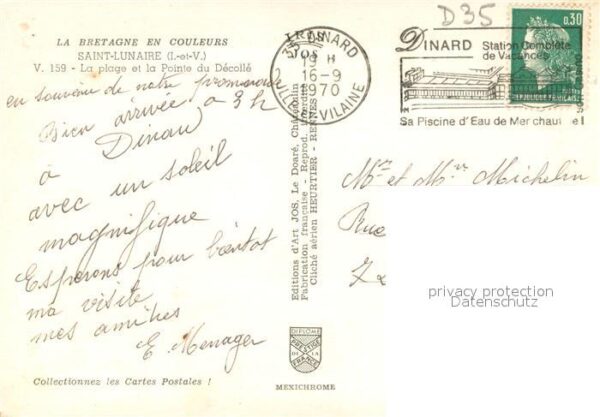 D35
LA BRETAGNE EN COULEURS
SAINT-LUNAIRE (I.-et-V.)
V. 159 - La plage et la Pointe du Décollé
en souvenir de notre promenade
Bien arrivée à 3h
à Dinard
avec un soleil
magnifique
Esperons pour bientot
ma visite
mes amitiés
E. Menager
Collectionnez les Cartes Postales !
Editions d'Art JOS, Le Doaré, Châteaulin
Fabrication française - Reprod. interdite
Cliché aérien HEURTIER - RENNES
DIPLOME
PRESTIGE
DE LA
FRANCE
MEXICHROME
35 DINARD
19 H
16-9
1970
ILLE VILAINE
DINARD Station Complète
de Vacances
Sa Piscine d'Eau de Mer chauffée !
0,30
REPUBLIQUE FRANÇAISE
Mr et Mme Michelin
Rue
privacy protection
Datenschutz